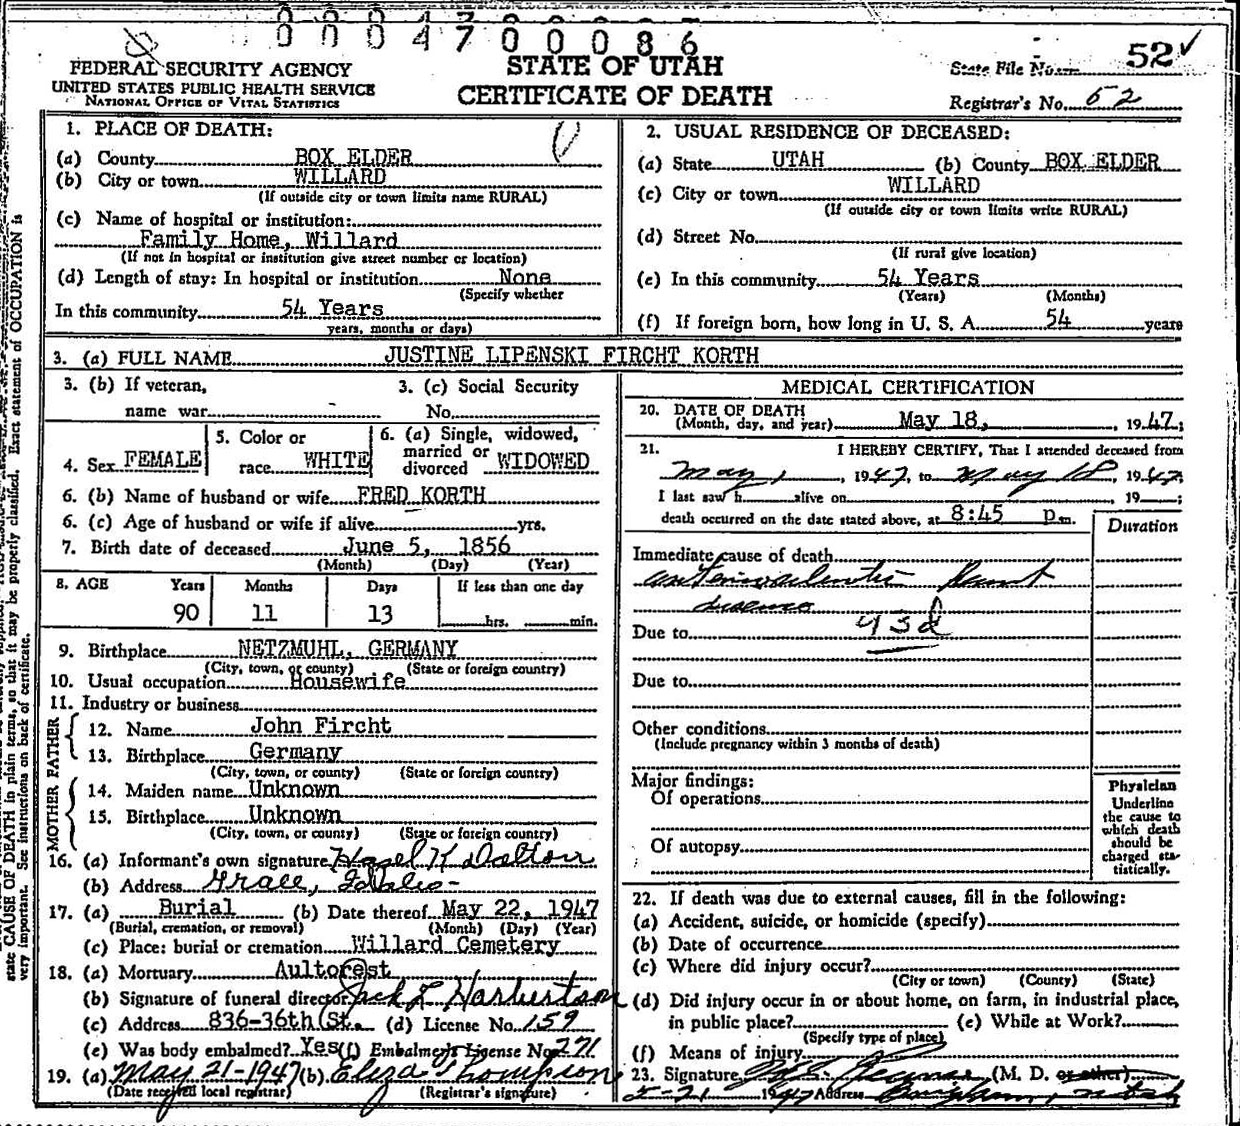 0 0 0 4 7 0 0 0 8 6
FEDERAL SECURITY AGENCY
UNITED STATES PUBLIC HEALTH SERVICE
NATIONAL OFFICE OF VITAL STATISTICS
STATE OF UTAH
CERTIFICATE OF DEATH
State File No. 52
Registrar's No. 52
1. PLACE OF DEATH:
(a) County BOX ELDER
(b) City or town WILLARD
(If outside city or town limits name RURAL)
(c) Name of hospital or institution:
Family Home, Willard
(If not in hospital or institution give street number or location)
(d) Length of stay: In hospital or institution None
(Specify whether
In this community 54 Years
years, months or days)
2. USUAL RESIDENCE OF DECEASED:
(a) State UTAH (b) County BOX ELDER
(c) City or town WILLARD
(If outside city or town limits write RURAL)
(d) Street No.
(If rural give location)
(e) In this community 54 Years
(Years) (Months)
(f) If foreign born, how long in U. S. A. 54 years
3. (a) FULL NAME JUSTINE LIPENSKI FIRCHT KORTH
3. (b) If veteran,
name war
3. (c) Social Security
No.
4. Sex FEMALE
5. Color or
race WHITE
6. (a) Single, widowed,
married or
divorced WIDOWED
6. (b) Name of husband or wife FRED KORTH
6. (c) Age of husband or wife if alive yrs.
7. Birth date of deceased June 5, 1856
(Month) (Day) (Year)
8. AGE Years Months Days If less than one day
90 11 13 hrs. min.
9. Birthplace NETZMUHL, GERMANY
(City, town, or county) (State or foreign country)
10. Usual occupation Housewife
11. Industry or business
FATHER
12. Name John Fircht
13. Birthplace Germany
(City, town, or county) (State or foreign country)
MOTHER
14. Maiden name Unknown
15. Birthplace Unknown
(City, town, or county) (State or foreign country)
16. (a) Informant's own signature Hazel K Dalton
(b) Address Grace, Idaho-
17. (a) Burial (b) Date thereof May 22, 1947
(Burial, cremation, or removal) (Month) (Day) (Year)
(c) Place: burial or cremation Willard Cemetery
18. (a) Mortuary Aultorest
(b) Signature of funeral director Jack L Harbertson
(c) Address 836-36th St. (d) License No. 159
(e) Was body embalmed? Yes (f) Embalmer's License No. 271
19. (a) May 21-1947 (b) Eliza Thompson
(Date received local registrar) (Registrar's signature)
MEDICAL CERTIFICATION
20. DATE OF DEATH
(Month, day, and year) May 18, , 1947;
21. I HEREBY CERTIFY, That I attended deceased from
May 1 , 1947, to May 18 , 1947
I last saw h alive on , 19 ;
death occurred on the date stated above, at 8:45 p.m.
Duration
Immediate cause of death
heart
disease
Due to 93d
Due to
Other conditions
(Include pregnancy within 3 months of death)
Major findings:
Of operations
Of autopsy
Physician
Underline
the cause to
which death
should be
charged sta-
tistically.
22. If death was due to external causes, fill in the following:
(a) Accident, suicide, or homicide (specify)
(b) Date of occurrence
(c) Where did injury occur?
(City or town) (County) (State)
(d) Did injury occur in or about home, on farm, in industrial place,
in public place? (e) While at Work?
(Specify type of place)
(f) Means of injury
23. Signature (M. D. or other)
5-21 1947 Address Brigham, Utah
state CAUSE OF DEATH in plain terms, so that it may be properly classified. Exact statement of OCCUPATION is
very important. See instructions on back of certificate.